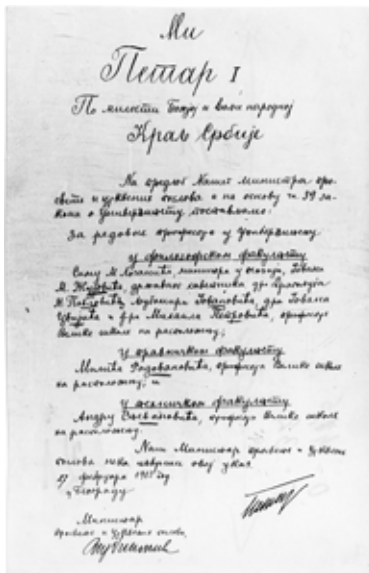 Ми
Петар I
По милости Божјој и вољи народној
Краљ Србије
На предлог Нашег министра про-
свете и црквених послова а на основу чл 39 за-
кона о Универзитету постављамо:
за редовне професоре у Универзитету
у филозофском факултету
Симу М. Лозанића, министра у оставци, Јована
М. Жујовића, државног саветника, др
М. Павловића, Љубомира Јовановића, дра Јована
Цвијића и дра Михаила Петровића, професоре
Велике школе на расположењу;
у правничком факултету
Милића Радовановића, професора Велике школе
на расположењу; и
у техничком факултету
Андру Стевановића, професора Велике школе
на расположењу.
Наш Министар просвете и црквених
послова нека изврши овај указ.
27 фебруара 1905 год
у Београду
Министар
просвете и црквених послова,